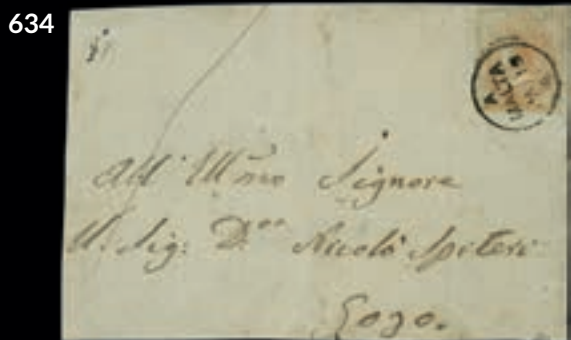 634
MALTA
All' Illmo Signore
Il Sig: Dre Nicolò Spiteri
Gozo.